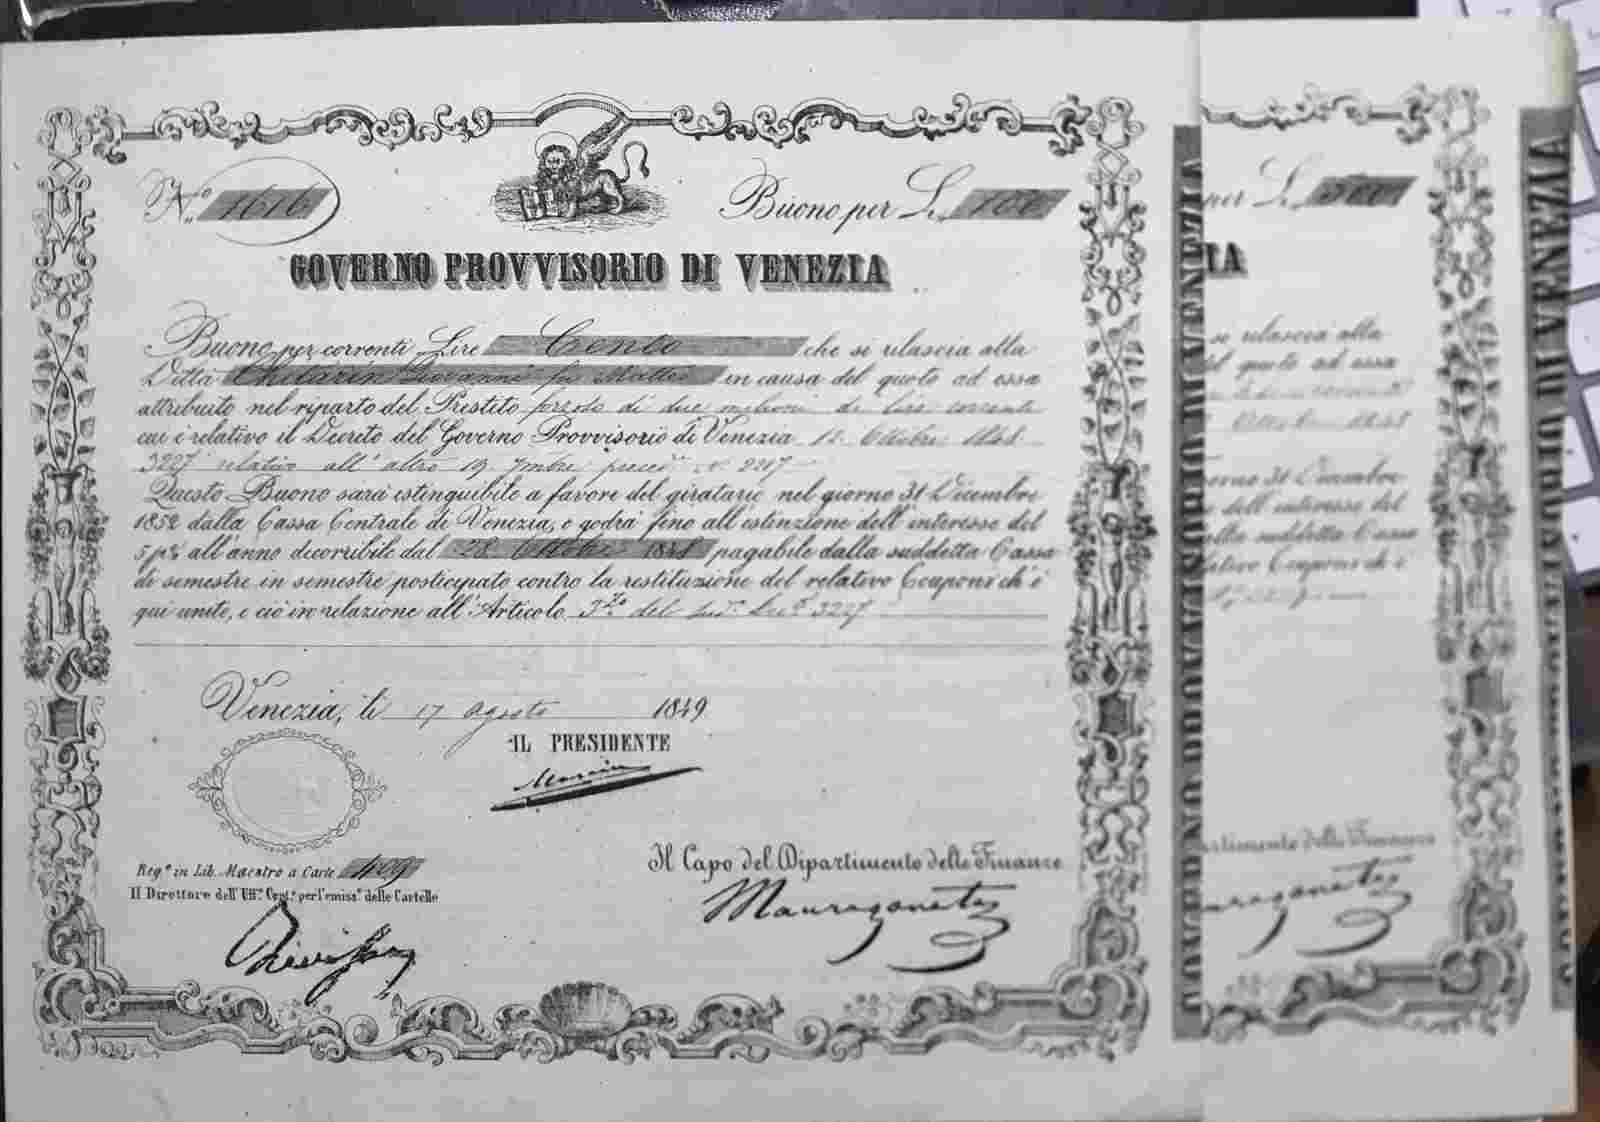 N.º 1616
Buono per L. 100
GOVERNO PROVVISORIO DI VENEZIA
Buono per correnti Lire Cento che si rilascia alla
Ditta Giovanni fu Matteo in causa del quoto ad essa
attribuito nel riparto del Prestito forzoso di due milioni di lire correnti
cui è relativo il Decreto del Governo Provvisorio di Venezia 12 Ottobre 1848
3227 relativo all'altro 19 7mbre preced.e N. 2217
Questo Buono sarà estinguibile a favore del giratario nel giorno 31 Dicembre
1852 dalla Cassa Centrale di Venezia, e godrà fino all'estinzione dell'interesse del
5 p% all'anno decorribile dal 28 Ottobre 1848 pagabile dalla suddetta Cassa
di semestre in semestre posticipato contro la restituzione del relativo Coupons ch'è
qui unito, e ciò in relazione all'Articolo 3zo del 3227
Venezia, li 17 Agosto 1849
IL PRESIDENTE
Manin
Reg.º in Lib. Maestro a Carte 409
Il Direttore dell'Uff.º Cent.º per l'emiss.e delle Cartelle
Il Capo del Dipartimento delle Finanze
Maurogonato
VENEZIA
per L. 500
IA
si rilascia alla
quoto ad essa
1848
31 Dicembre
dell'interesse del
suddetta Cassa
relativo Coupons ch'è
Dipartimento delle Finanze
DI VENEZIA